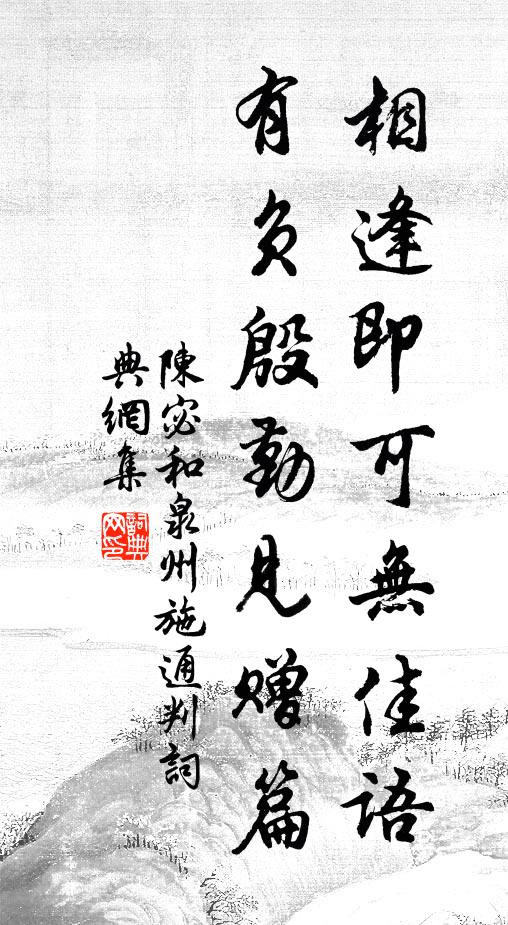 相逢即可無佳語
有負殷勤見贈篇
陳宓和泉州施通判詞
典網集
詞典
网印